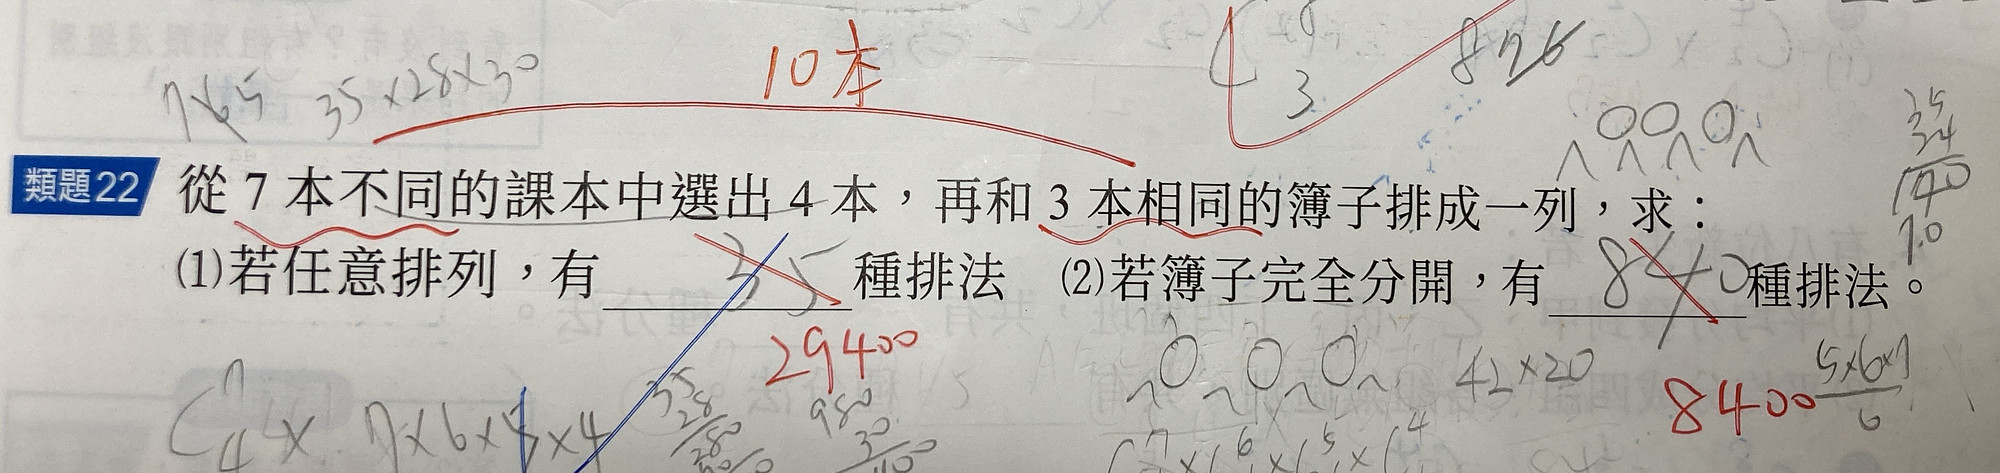 10本
C 8 3
826
7×6 5
35×28×30
35
24
140
70
類題22 從 7 本不同的課本中選出 4 本，再和 3 本相同的簿子排成一列，求：
⑴若任意排列，有 35 種排法 ⑵若簿子完全分開，有 840 種排法。
29400
8400
42×20
5×6×7
6
C 7 4 × 7×6×5×4
35
28
280
980
30